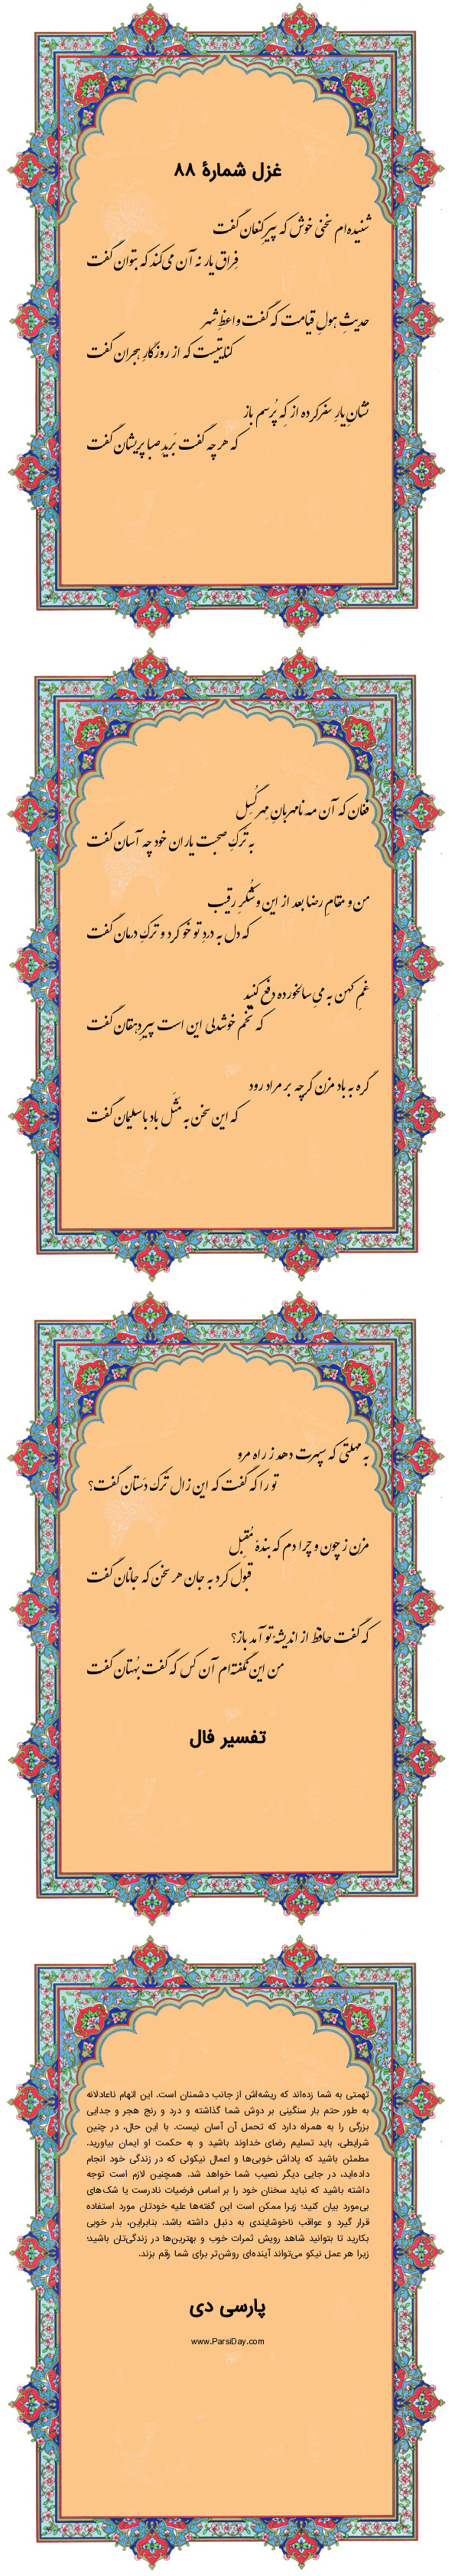 غزل شمارهٔ ۸۸
شنیده‌ام سخنی خوش که پیرِ کنعان گفت
فِراقِ یار نه آن می‌کند که بتوان گفت
حدیثِ هولِ قیامت که گفت واعظِ شهر
کنایتیست که از روزگارِ هجران گفت
نشانِ یارِ سفرکرده از که پُرسم باز
که هر چه گفت بَریدِ صبا پریشان گفت
فغان که آن مه نامهربانِ مِهرگُسِل
به ترکِ صحبت یاران خود چه آسان گفت
من و مقامِ رضا بعد از این و شُکرِ رقیب
که دل به دردِ تو خو کرد و ترکِ درمان گفت
غمِ کهن به میِ سالخورده دفع کنید
که تخم خوشدلی این است پیرِ دهقان گفت
گره به باد مزن گر چه بر مراد رود
که این سخن به مَثَل باد با سلیمان گفت
به مهلتی که سپهرت دهد ز راه مرو
تو را که گفت که این زال ترک دَستان گفت؟
مزن ز چون و چرا دم که بندهٔ مُقبِل
قبول کرد به جان هر سخن که جانان گفت
که گفت حافظ از اندیشهٔ تو آمد باز؟
من این نگفته‌ام آن کس که گفت بُهتان گفت
تفسیر فال
تهمتی به شما زده‌اند که ریشه‌اش از جانب دشمنان است. این اتهام ناعادلانه
به طور حتم بار سنگینی بر دوش شما گذاشته و درد و رنج هجر و جدایی
بزرگی را به همراه دارد که تحمل آن آسان نیست. با این حال، در چنین
شرایطی، باید تسلیم رضای خداوند باشید و به حکمت او ایمان بیاورید.
مطمئن باشید که پاداش خوبی‌ها و اعمال نیکوئی که در زندگی خود انجام
داده‌اید، در جایی دیگر نصیب شما خواهد شد. همچنین لازم است توجه
داشته باشید که نباید سخنان خود را بر اساس فرضیات نادرست یا شک‌های
بی‌مورد بیان کنید؛ زیرا ممکن است این گفته‌ها علیه خودتان مورد استفاده
قرار گیرد و عواقب ناخوشایندی به دنبال داشته باشد. بنابراین، بذر خوبی
بکارید تا بتوانید شاهد رویش ثمرات خوب و بهترین‌ها در زندگی‌تان باشید؛
زیرا هر عمل نیکو می‌تواند آینده‌ای روشن‌تر برای شما رقم بزند.
پارسی دی
www.ParsiDay.com